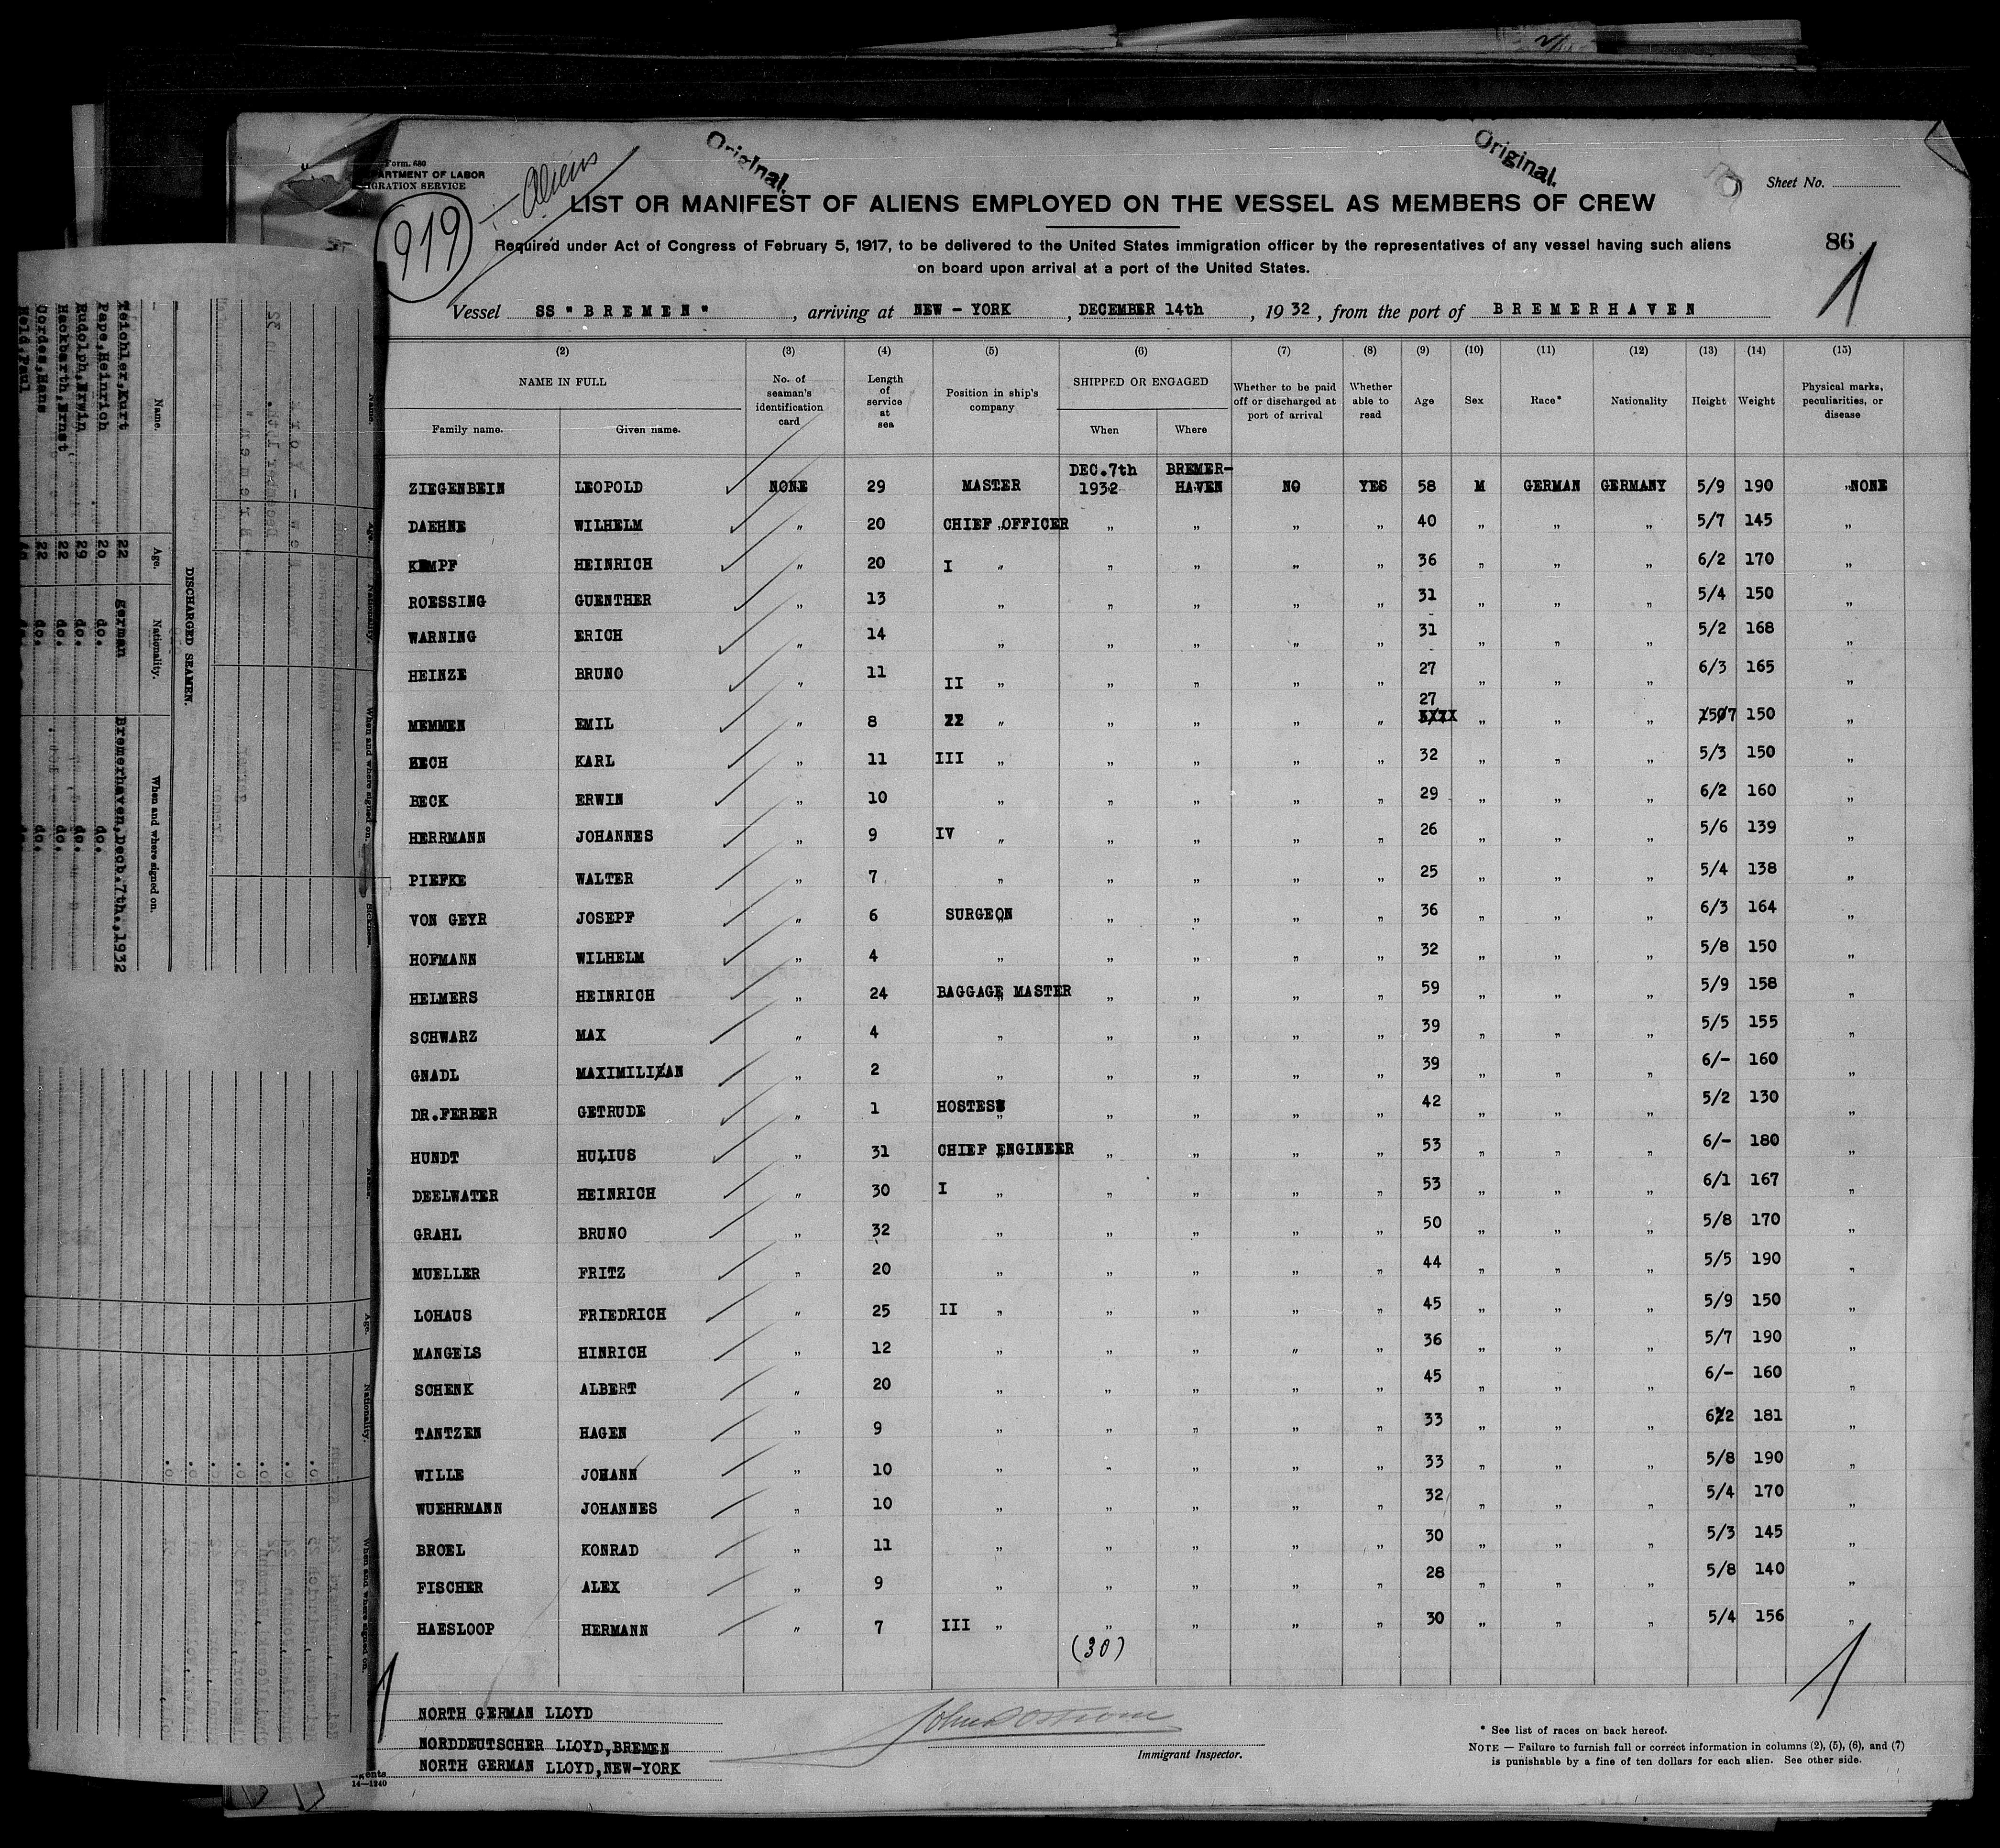 Form. 680
DEPARTMENT OF LABOR
IGRATION SERVICE
Aliens
919
Original.
Original.
Sheet No.
LIST OR MANIFEST OF ALIENS EMPLOYED ON THE VESSEL AS MEMBERS OF CREW
Required under Act of Congress of February 5, 1917, to be delivered to the United States immigration officer by the representatives of any vessel having such aliens
on board upon arrival at a port of the United States.
86
1
Vessel SS "BREMEN", arriving at NEW-YORK, DECEMBER 14th, 1932, from the port of BREMERHAVEN
(2) (3) (4) (5) (6) (7) (8) (9) (10) (11) (12) (13) (14) (15)
NAME IN FULL No. of seaman's identification card Length of service at sea Position in ship's company SHIPPED OR ENGAGED Whether to be paid off or discharged at port of arrival Whether able to read Age Sex Race* Nationality Height Weight Physical marks, peculiarities, or disease
Family name. Given name. When Where
DEC.7th BREMER-
ZIEGENBEIN LEOPOLD NONE 29 MASTER 1932 HAVEN NO YES 58 M GERMAN GERMANY 5/9 190 "NONE
DAEHNE WILHELM " 20 CHIEF OFFICER " " " " 40 " " " 5/7 145 "
KEMPF HEINRICH " 20 I " " " " " 36 " " " 6/2 170 "
ROESSING GUENTHER " 13 " " " " " 31 " " " 5/4 150 "
WARNING ERICH " 14 " " " " " 31 " " " 5/2 168 "
HEINZE BRUNO " 11 II " " " " " 27 " " " 6/3 165 "
27
MEMMEN EMIL " 8 " " " " " " " " 150 "
HECH KARL " 11 III " " " " " 32 " " " 5/3 150 "
BECK ERWIN " 10 " " " " " 29 " " " 6/2 160 "
HERRMANN JOHANNES " 9 IV " " " " " 26 " " " 5/6 139 "
PIEFKE WALTER " 7 " " " " " 25 " " " 5/4 138 "
VON GEYR JOSEPF " 6 SURGEON " " " " 36 " " " 6/3 164 "
HOFMANN WILHELM " 4 " " " " " 32 " " " 5/8 150 "
HELMERS HEINRICH " 24 BAGGAGE MASTER " " " " 59 " " " 5/9 158 "
SCHWARZ MAX " 4 " " " " " 39 " " " 5/5 155 "
GNADL MAXIMILIAN " 2 " " " " " 39 " " " 6/- 160 "
DR.FERBER GETRUDE " 1 HOSTESS " " " " 42 " " " 5/2 130 "
HUNDT HULIUS " 31 CHIEF ENGINEER " " " " 53 " " " 6/- 180 "
DEELWATER HEINRICH " 30 I " " " " " 53 " " " 6/1 167 "
GRAHL BRUNO " 32 " " " " " 50 " " " 5/8 170 "
MUELLER FRITZ " 20 " " " " " 44 " " " 5/5 190 "
LOHAUS FRIEDRICH " 25 II " " " " " 45 " " " 5/9 150 "
MANGELS HINRICH " 12 " " " " " 36 " " " 5/7 190 "
SCHENK ALBERT " 20 " " " " " 45 " " " 6/- 160 "
TANTZEN HAGEN " 9 " " " " " 33 " " " 6/2 181 "
WILLE JOHANN " 10 " " " " " 33 " " " 5/8 190 "
WUEHRMANN JOHANNES " 10 " " " " " 32 " " " 5/4 170 "
BROEL KONRAD " 11 " " " " " 30 " " " 5/3 145 "
FISCHER ALEX " 9 " " " " " 28 " " " 5/8 140 "
HAESLOOP HERMANN " 7 III " " " " " 30 " " " 5/4 156 "
(30)
1 1
NORTH GERMAN LLOYD
NORDDEUTSCHER LLOYD,BREMEN
NORTH GERMAN LLOYD,NEW-YORK
Agents
14—1240
Immigrant Inspector.
* See list of races on back hereof.
NOTE — Failure to furnish full or correct information in columns (2), (5), (6), and (7)
is punishable by a fine of ten dollars for each alien. See other side.
DISCHARGED SEAMEN.
Name. Age. Nationality. When and where signed on.
Teichler,Kurt 22 german Bremerhaven,Decb.7th.,1932
Pape,Heinrich 20 do. do.
Rudolph,Erwin 29 do. do.
Hackbarth,Ernst 22 do. do.
Cordes,Hans 22 do. do.
Held,Paul